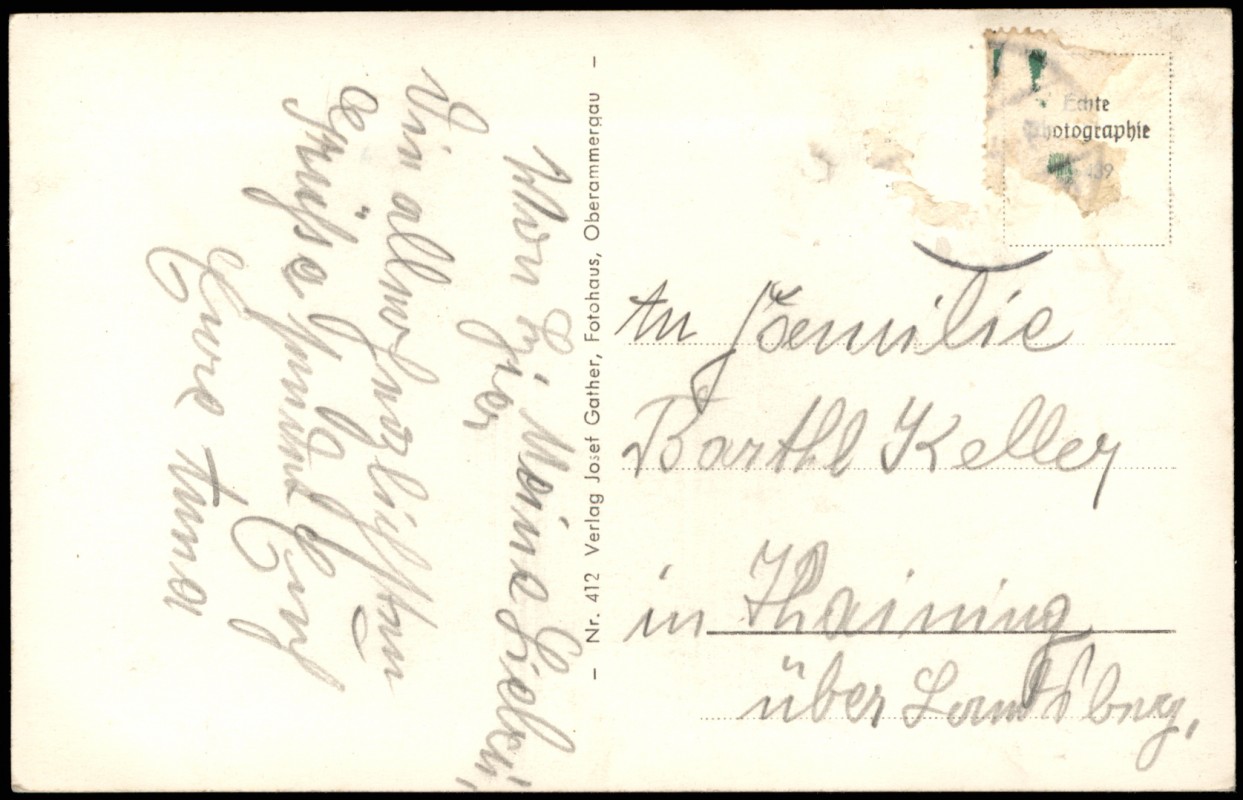 Meine Lieben,
Die allerherzlichsten
Grüsse sendet Euch
Eure Anna
– Nr. 412 Verlag Josef Gather, Fotohaus, Oberammergau –
Echte
Photographie
39
An Familie
Barthl Keller
in Thaining
über Landsberg.